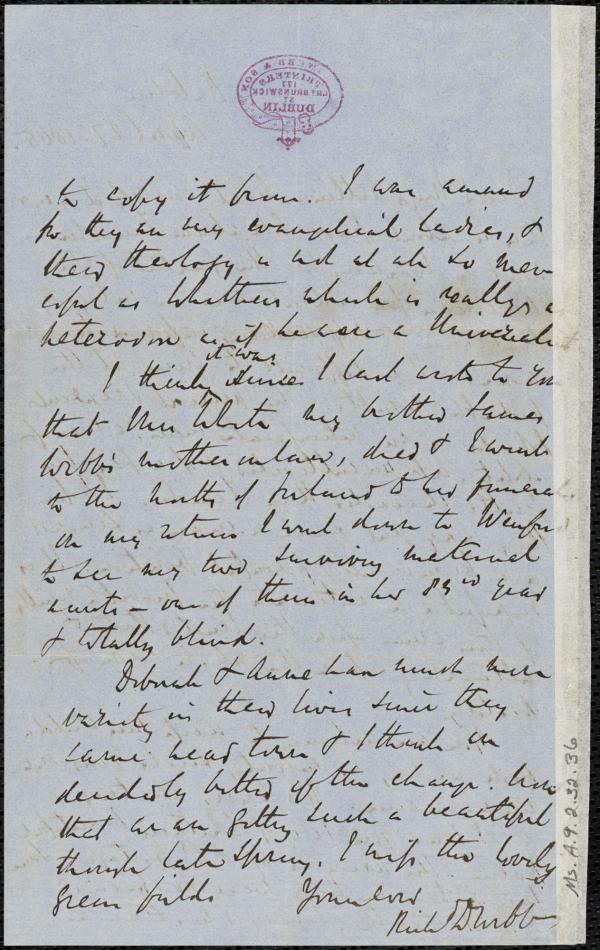 WEBB & SON
PRINTERS
177
GT BRUNSWICK
ST
DUBLIN
to copy it from. I was amused
for they are very evangelical ladies, &
their theology is not at all so mer-
ciful as Whittier's which is really as
heterodox as if he were a Universalist
it was
I think since I last wrote to you
that Mrs White my brother James
Webb's mother in law, died & I went
to the north of Ireland to her funeral
on my return I went down to Wexford
to see my two surviving maternal
aunts – one of them in her 83rd year
& totally blind.
Deborah & Anne have much more
variety in their lives since they
came near town & I think are
decidedly better of the change. Now
that we are getting such a beautiful
though late Spring. I miss the lovely
green fields
Yours ever
Richd D Webb
Ms. A.9.2.32.36